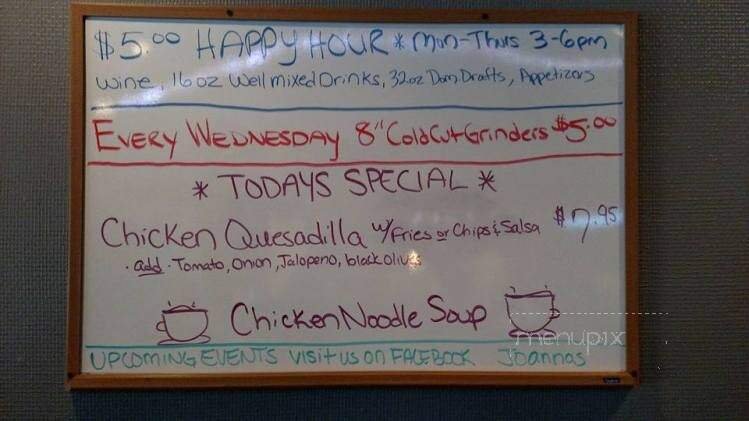 $5.00 HAPPY HOUR * Mon-Thurs 3-6pm
Wine, 16oz Well mixed Drinks, 32oz Dom Drafts, Appetizers
EVERY WEDNESDAY 8" Cold Cut Grinders $5.00
* TODAYS SPECIAL *
Chicken Quesadilla w/Fries or Chips & Salsa $7.95
· add · Tomato, Onion, Jalopeno, black olives
Chicken Noodle Soup
UPCOMING EVENTS VISIT US ON FACEBOOK Joannas
menupix